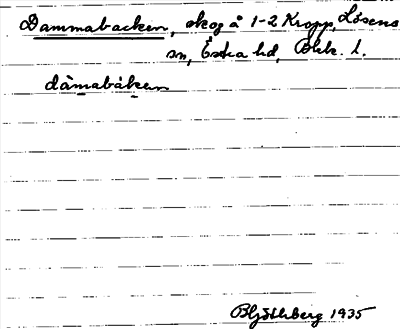 Dammabacken, skog å 1-2 Kropp, Lösens
sn, Östra hd, Blek. l.
dàmabàken
1935